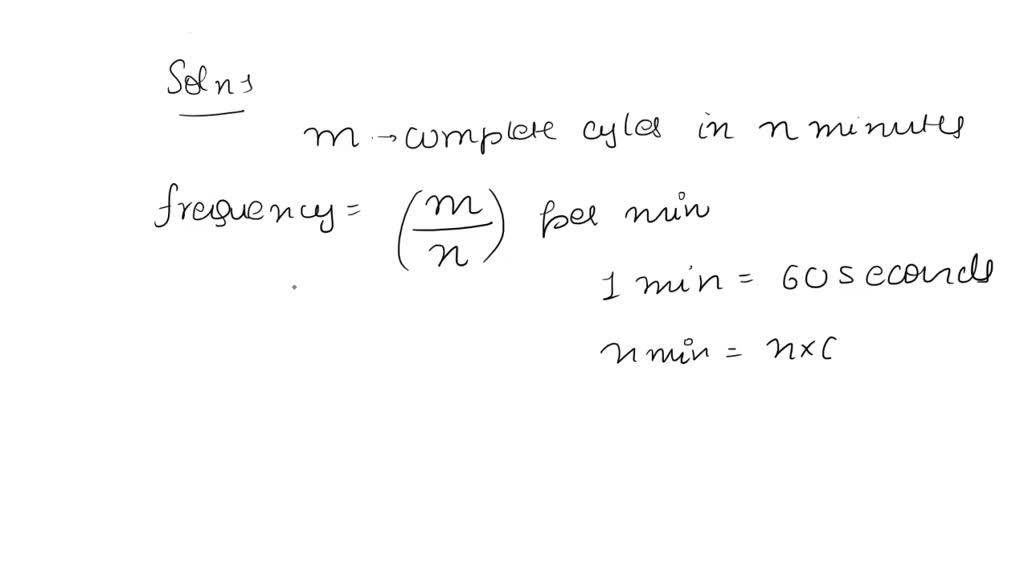 Soln s
m → complete cyles in n minutes
frequency = (m/n) per min
1 min = 60 seconds
n min = n×C